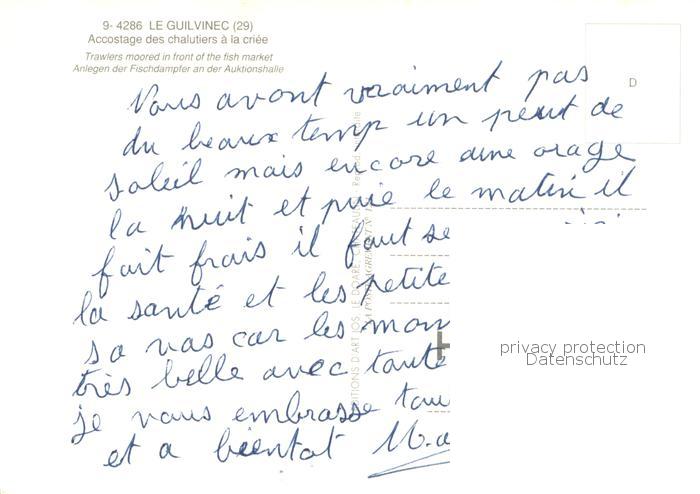 9- 4286 LE GUILVINEC (29)
Accostage des chalutiers à la criée
Trawlers moored in front of the fish market
Anlegen der Fischdampfer an der Auktionshalle
D
Vous avont vraiment pas
du beaux temp un peut de
soleil mais encore orage
la nuit et puie le matin il
fait frais il faut se
la santé et les petite
sa vas car les
très belle avec toute
je vous embrasse
et a bientot
EDITIONS D'ART JOS LE DOARE, CHATEAULIN
privacy protection
Datenschutz